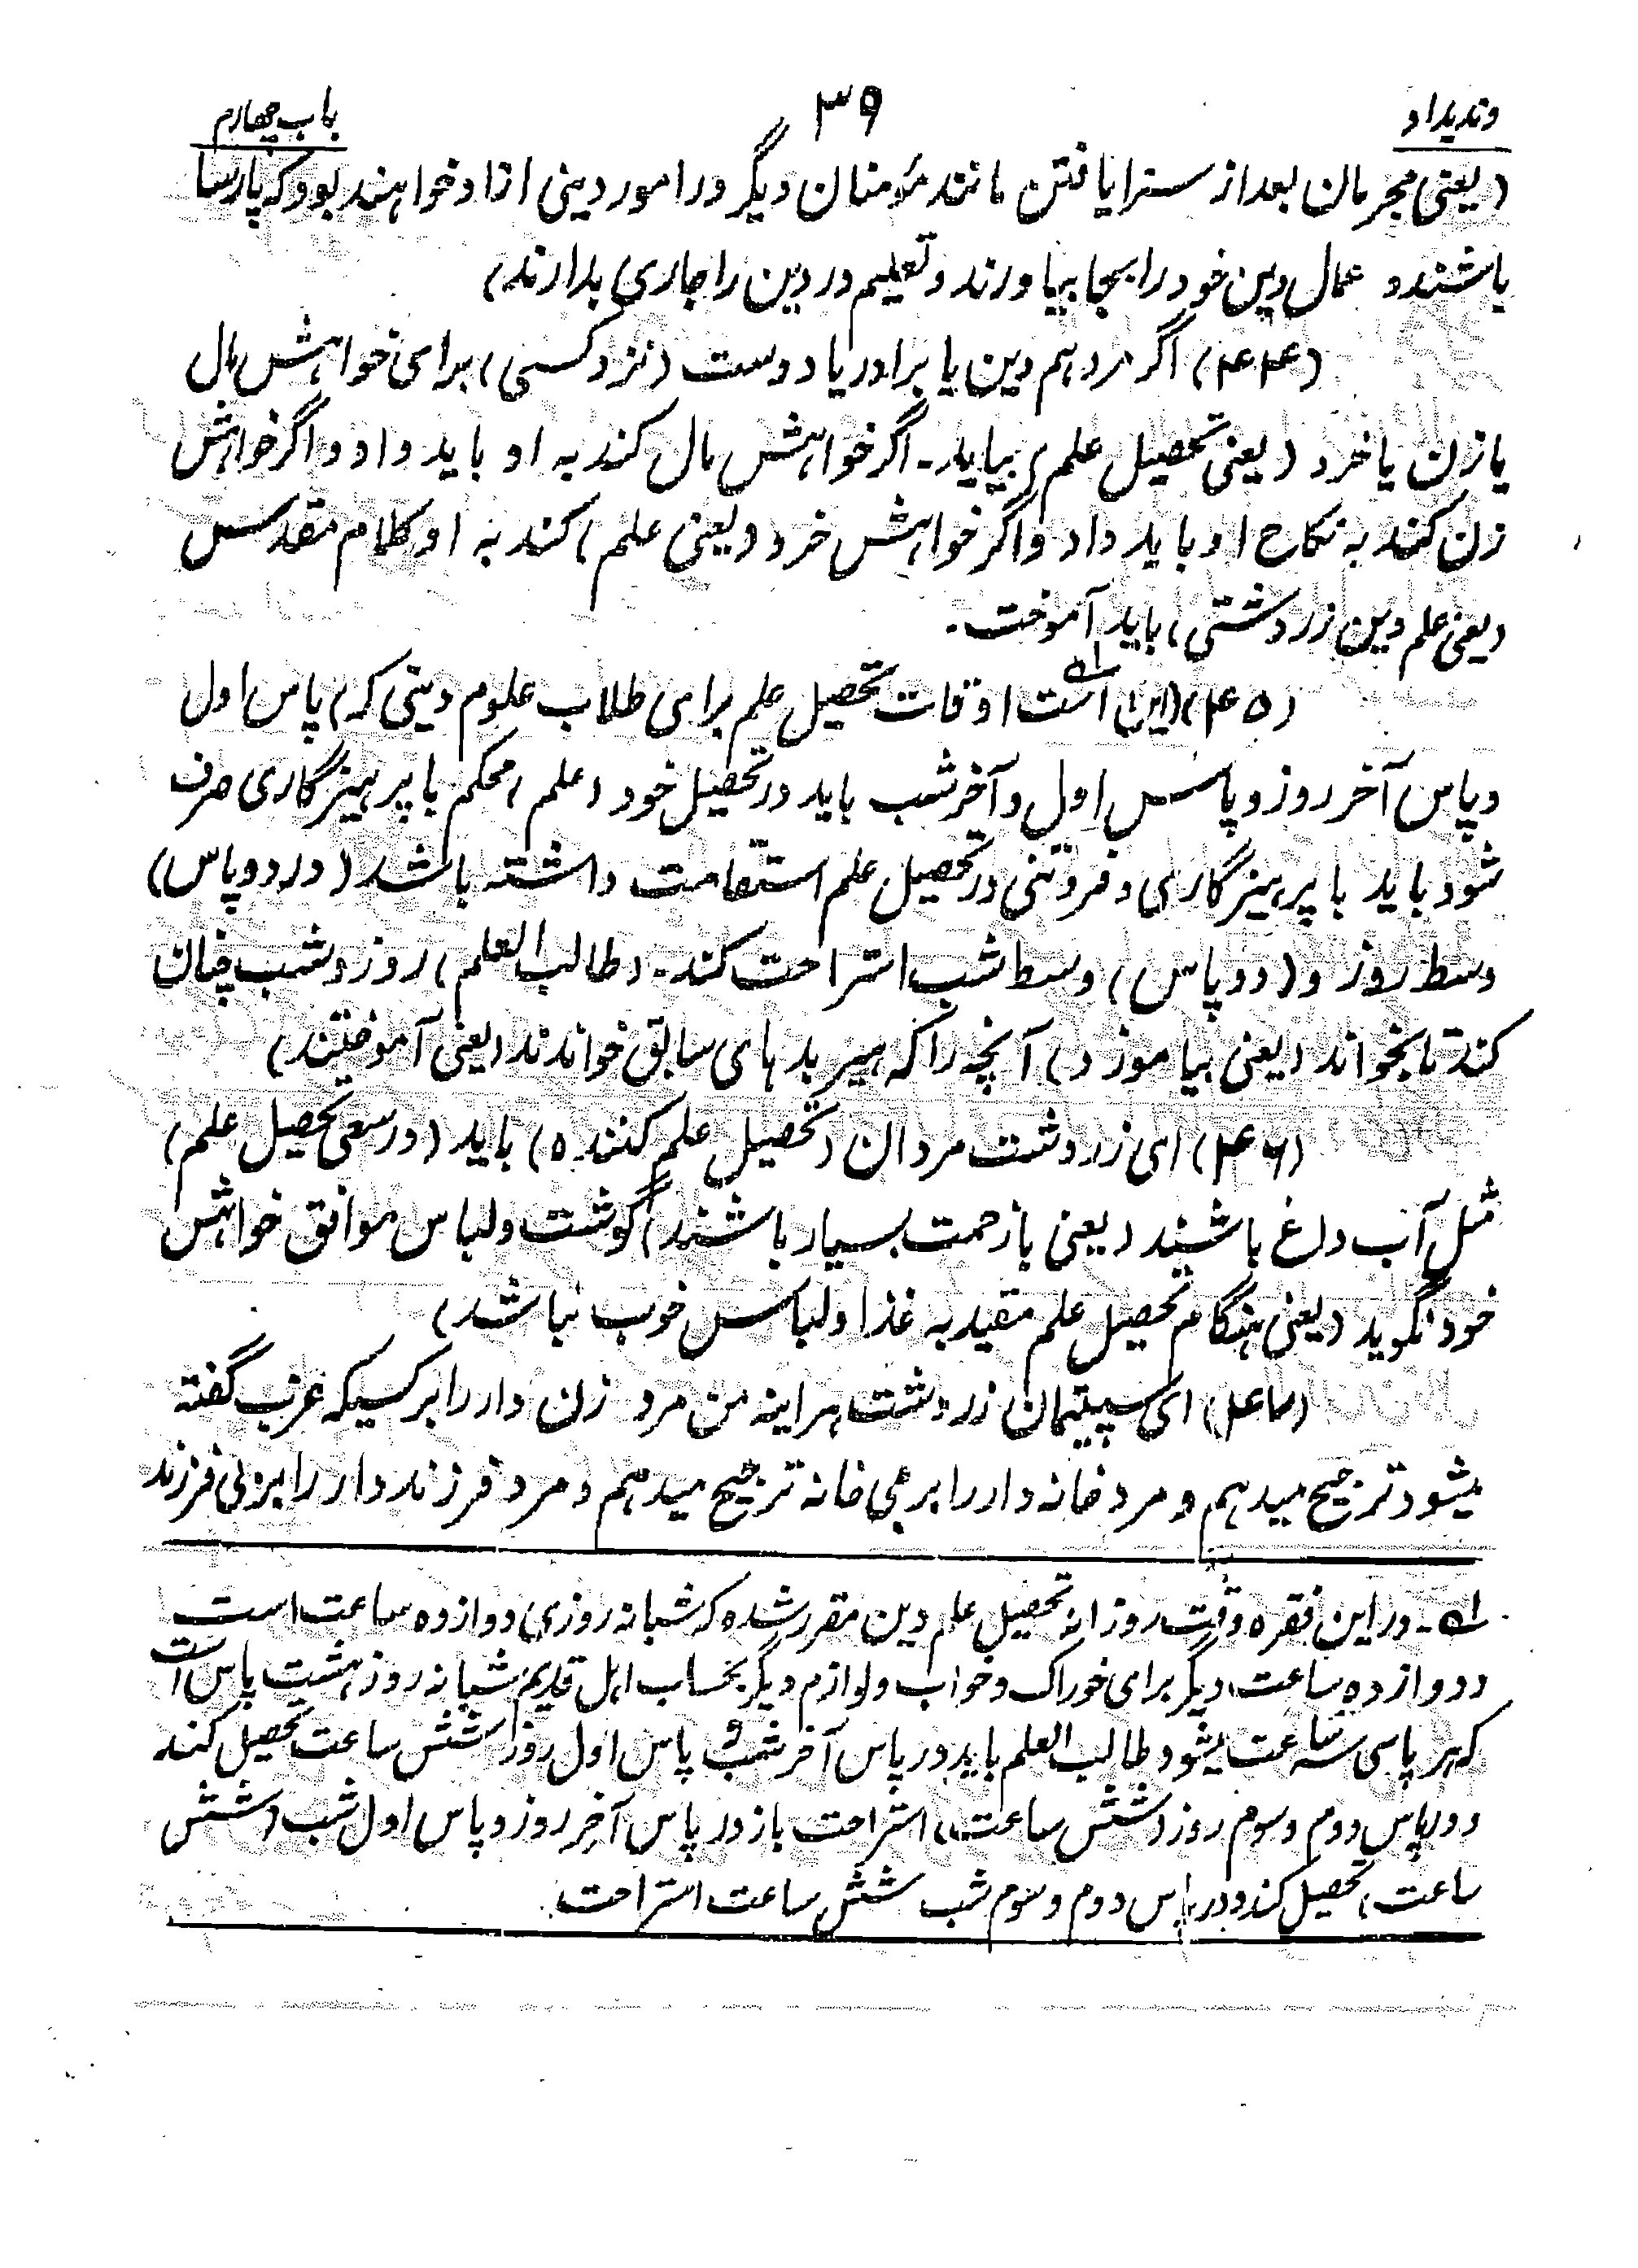 وندیداد ۳۹ باب چهارم
(یعنی مجرمان بعد از سزا یافتن مانند مؤمنان دیگر در امور دینی ازاد خواهند بود که پارسا
باشند و عمال دین خود را بجا بیاورند و تعلیم در دین را جاری بدارند)
(۴۴) اگر مرد هم دین یا برادر یا دوست (نزد کسی) برای خواهش مال
یا زن یا خرد (یعنی تحصیل علم) بیاید۔ اگر خواهش مال کند به او باید داد و اگر خواهش
زن کند به نکاح او باید داد و اگر خواهش خرد (یعنی علم) کند به او کلام مقدس
(یعنی علم دین زردشتی) باید آموخت۔
(۴۵) (این است اوقات تحصیل علم برای طلاب علوم دینی که) پاس اول
و پاس آخر روز و پاس اول و آخر شب باید در تحصیل خود (علم) محکم با پرهیزگاری صرف
شود باید با پرهیزگاری و فروتنی در تحصیل علم استقامت داشته باشد (در دو پاس)
وسط روز و (دو پاس) وسط شب استراحت کند۔ (طالب العلم) روز و شب چنان
کند تا بخواند (یعنی بیاموزد) آنچه را که هیربدهای سابق خواندند (یعنی آموختند)
(۴۶) ای زردشت مردان (تحصیل علم کننده) باید (در سعی تحصیل علم)
مثل آب داغ باشند (یعنی با زحمت بسیار باشند) گوشت و لباس موافق خواهش
خود نگوید (یعنی هنگام تحصیل علم مقید به غذا و لباس خوب نباشد)
(۴۷) ای سپیتمان زردشت هراینه من مرد زن دار را بر کسیکه عزب گفته
میشود ترجیح میدهم و مرد خانه دار را بر بی خانه ترجیح میدهم و مرد فرزند دار را بر بی فرزند
۱۵۔ در این فقره وقت روزانه تحصیل علم دین مقرر شده که شبانه روزی دوازده ساعت است
و دوازده ساعت دیگر برای خوراک و خواب و لوازم دیگر بحساب اهل قدیم شبانه روز هشت پاس است
که هر پاسی سه ساعت میشود طالب العلم باید در پاس آخر شب و پاس اول روز شش ساعت تحصیل کند
و در پاس دوم و سوم روز (شش ساعت) استراحت باز در پاس آخر روز و پاس اول شب (شش
ساعت) تحصیل کند و در پاس دوم و سوم شب شش ساعت استراحت.